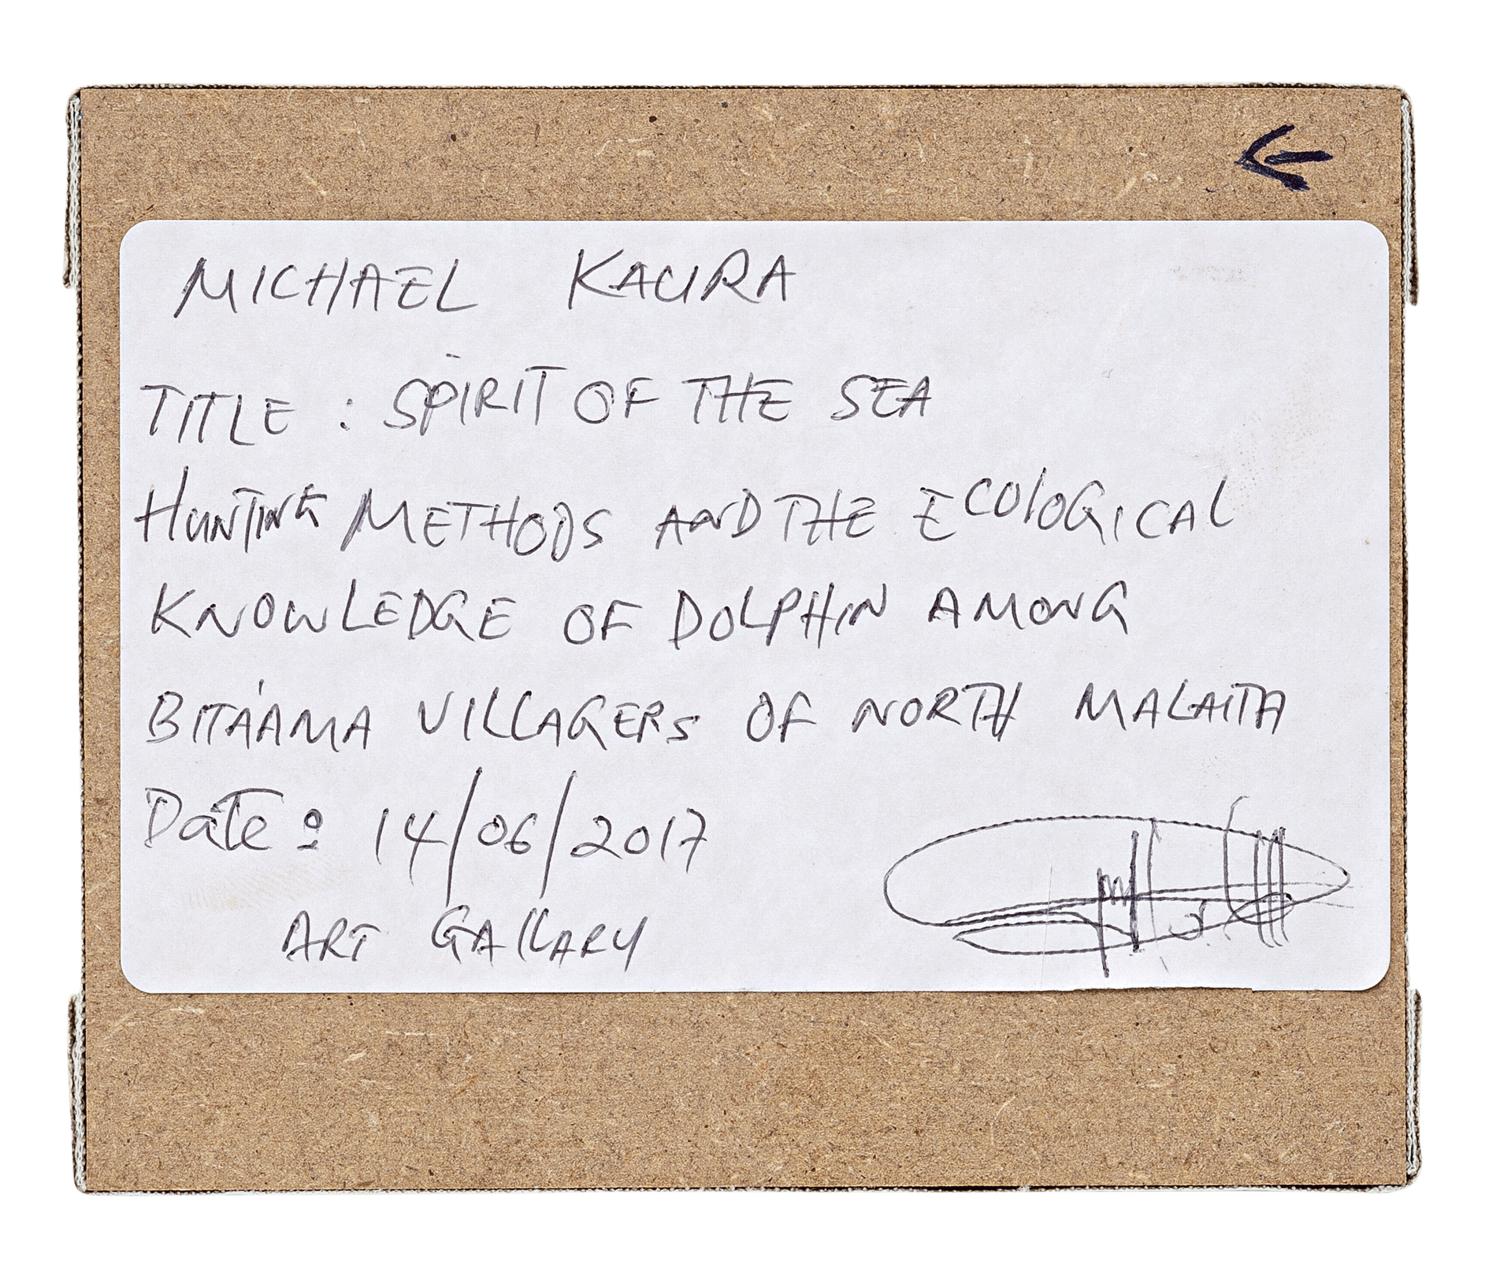 MICHAEL KAURA
TITLE : SPIRIT OF THE SEA
HUNTING METHODS AND THE ECOLOGICAL
KNOWLEDGE OF DOLPHIN AMONG
BITA'AMA VILLAGERS OF NORTH MALAITA
Date : 14/06/2017
ART GALLARY